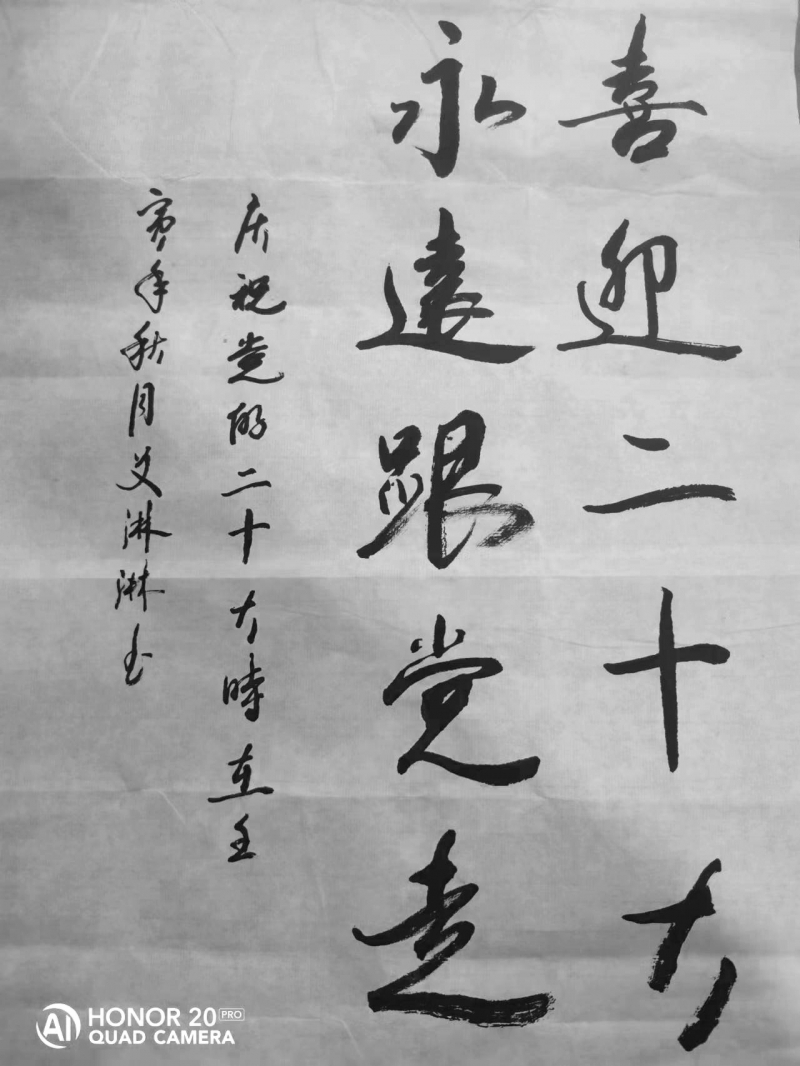 喜迎二十大
永遠跟党走
庆祝党的二十大時在壬
寅年秋月艾淋淋书
HONOR 20 PRO
QUAD CAMERA
AI